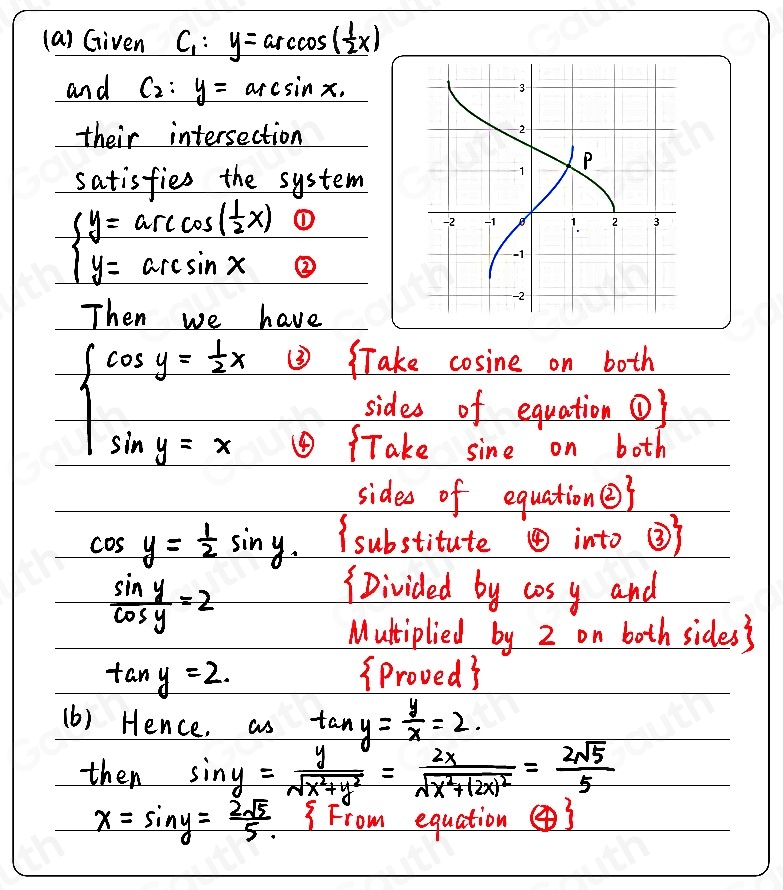 (a) Given C₁: y = arccos(½x)
and C₂: y = arcsin x.
their intersection
satisfies the system
{ y = arccos(½x) ①
y = arcsin x ②
Then we have
{ cos y = ½x ③ {Take cosine on both
sides of equation ①}
sin y = x ④ {Take sine on both
sides of equation ②}
cos y = ½ sin y. {substitute ④ into ③}
sin y / cos y = 2 {Divided by cos y and
Multiplied by 2 on both sides}
tan y = 2. {Proved}
(b) Hence, as tan y = y/x = 2.
then sin y = y/√(x²+y²) = 2x/√(x²+(2x)²) = 2√5/5
x = sin y = 2√5/5. {From equation ④}
3
2
P
1
-2 -1 0 1 2 3
-1
-2
Gauth